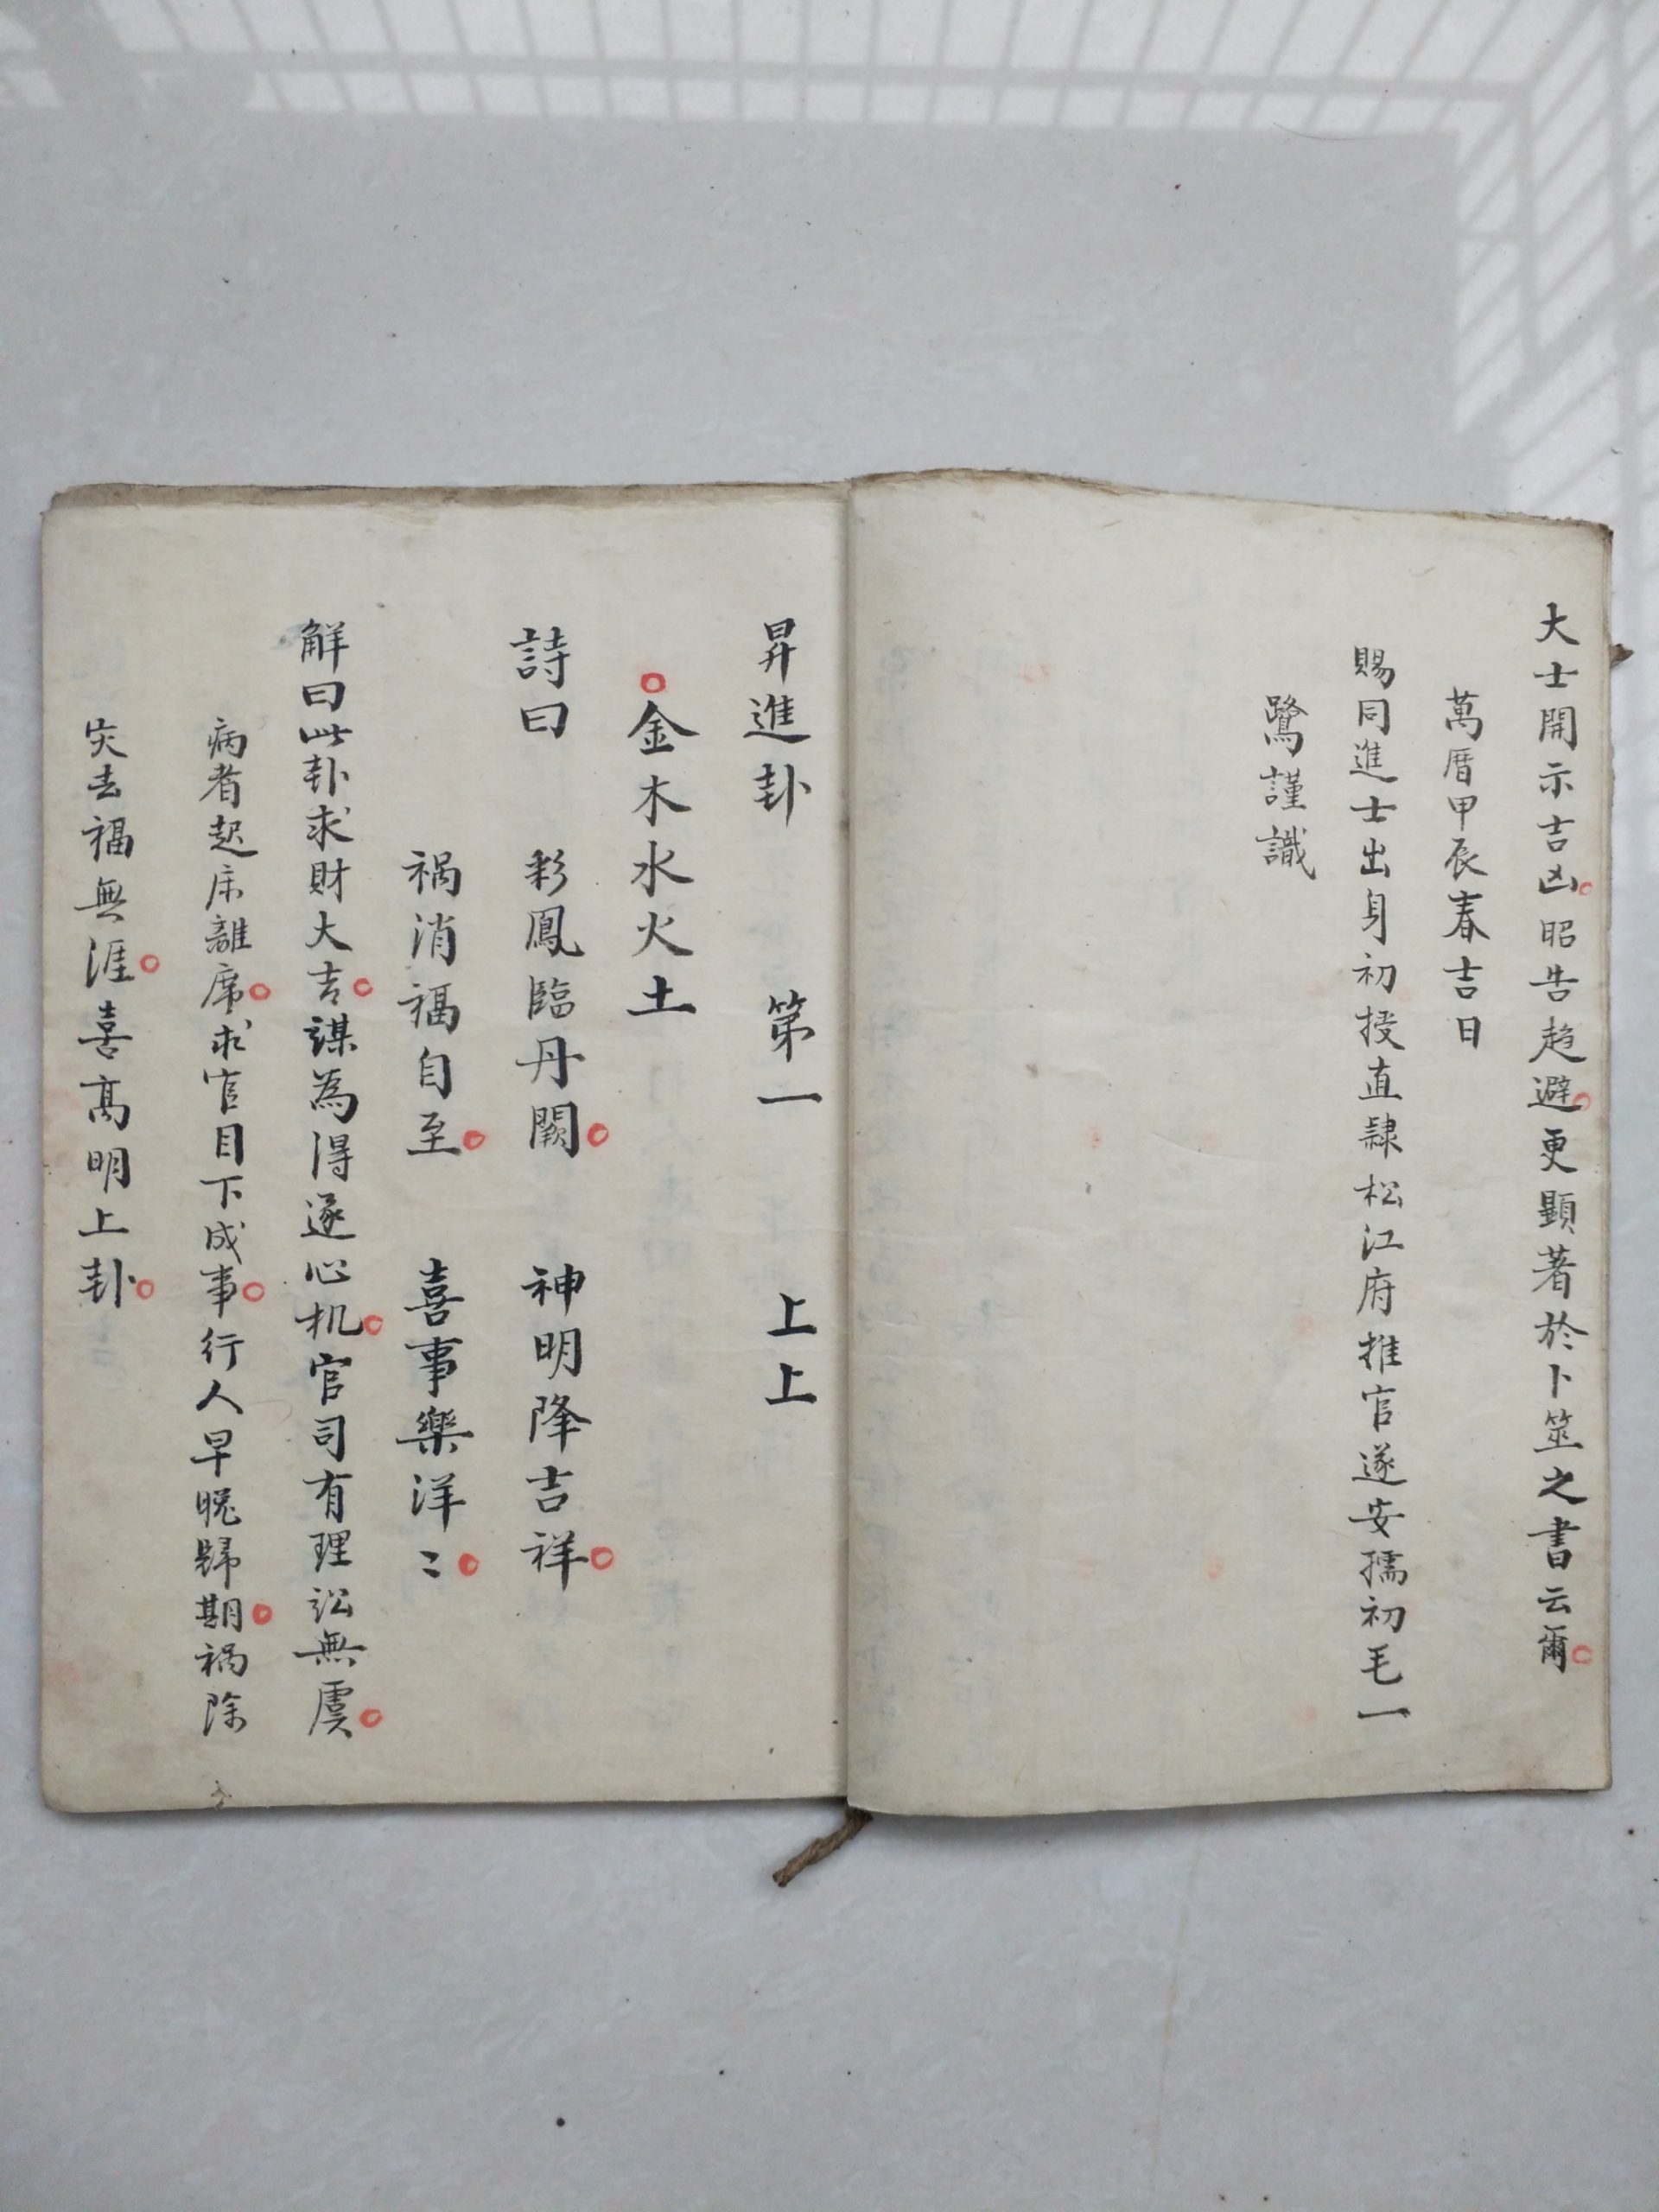 大士開示吉凶昭告趋避更顯著於卜筮之書云爾
萬曆甲辰春吉日
賜同進士出身初授直隸松江府推官遂安孺初毛一
鷺謹識
昇進卦 第一 上上
金木水火土
詩曰 彩鳳臨丹闕 神明降吉祥
禍消福自至 喜事樂洋〻
解曰此卦求財大吉謀為得遂心机官司有理訟無虞
病者起床離席求官目下成事行人早晚歸期禍除
失去福無涯喜高明上卦